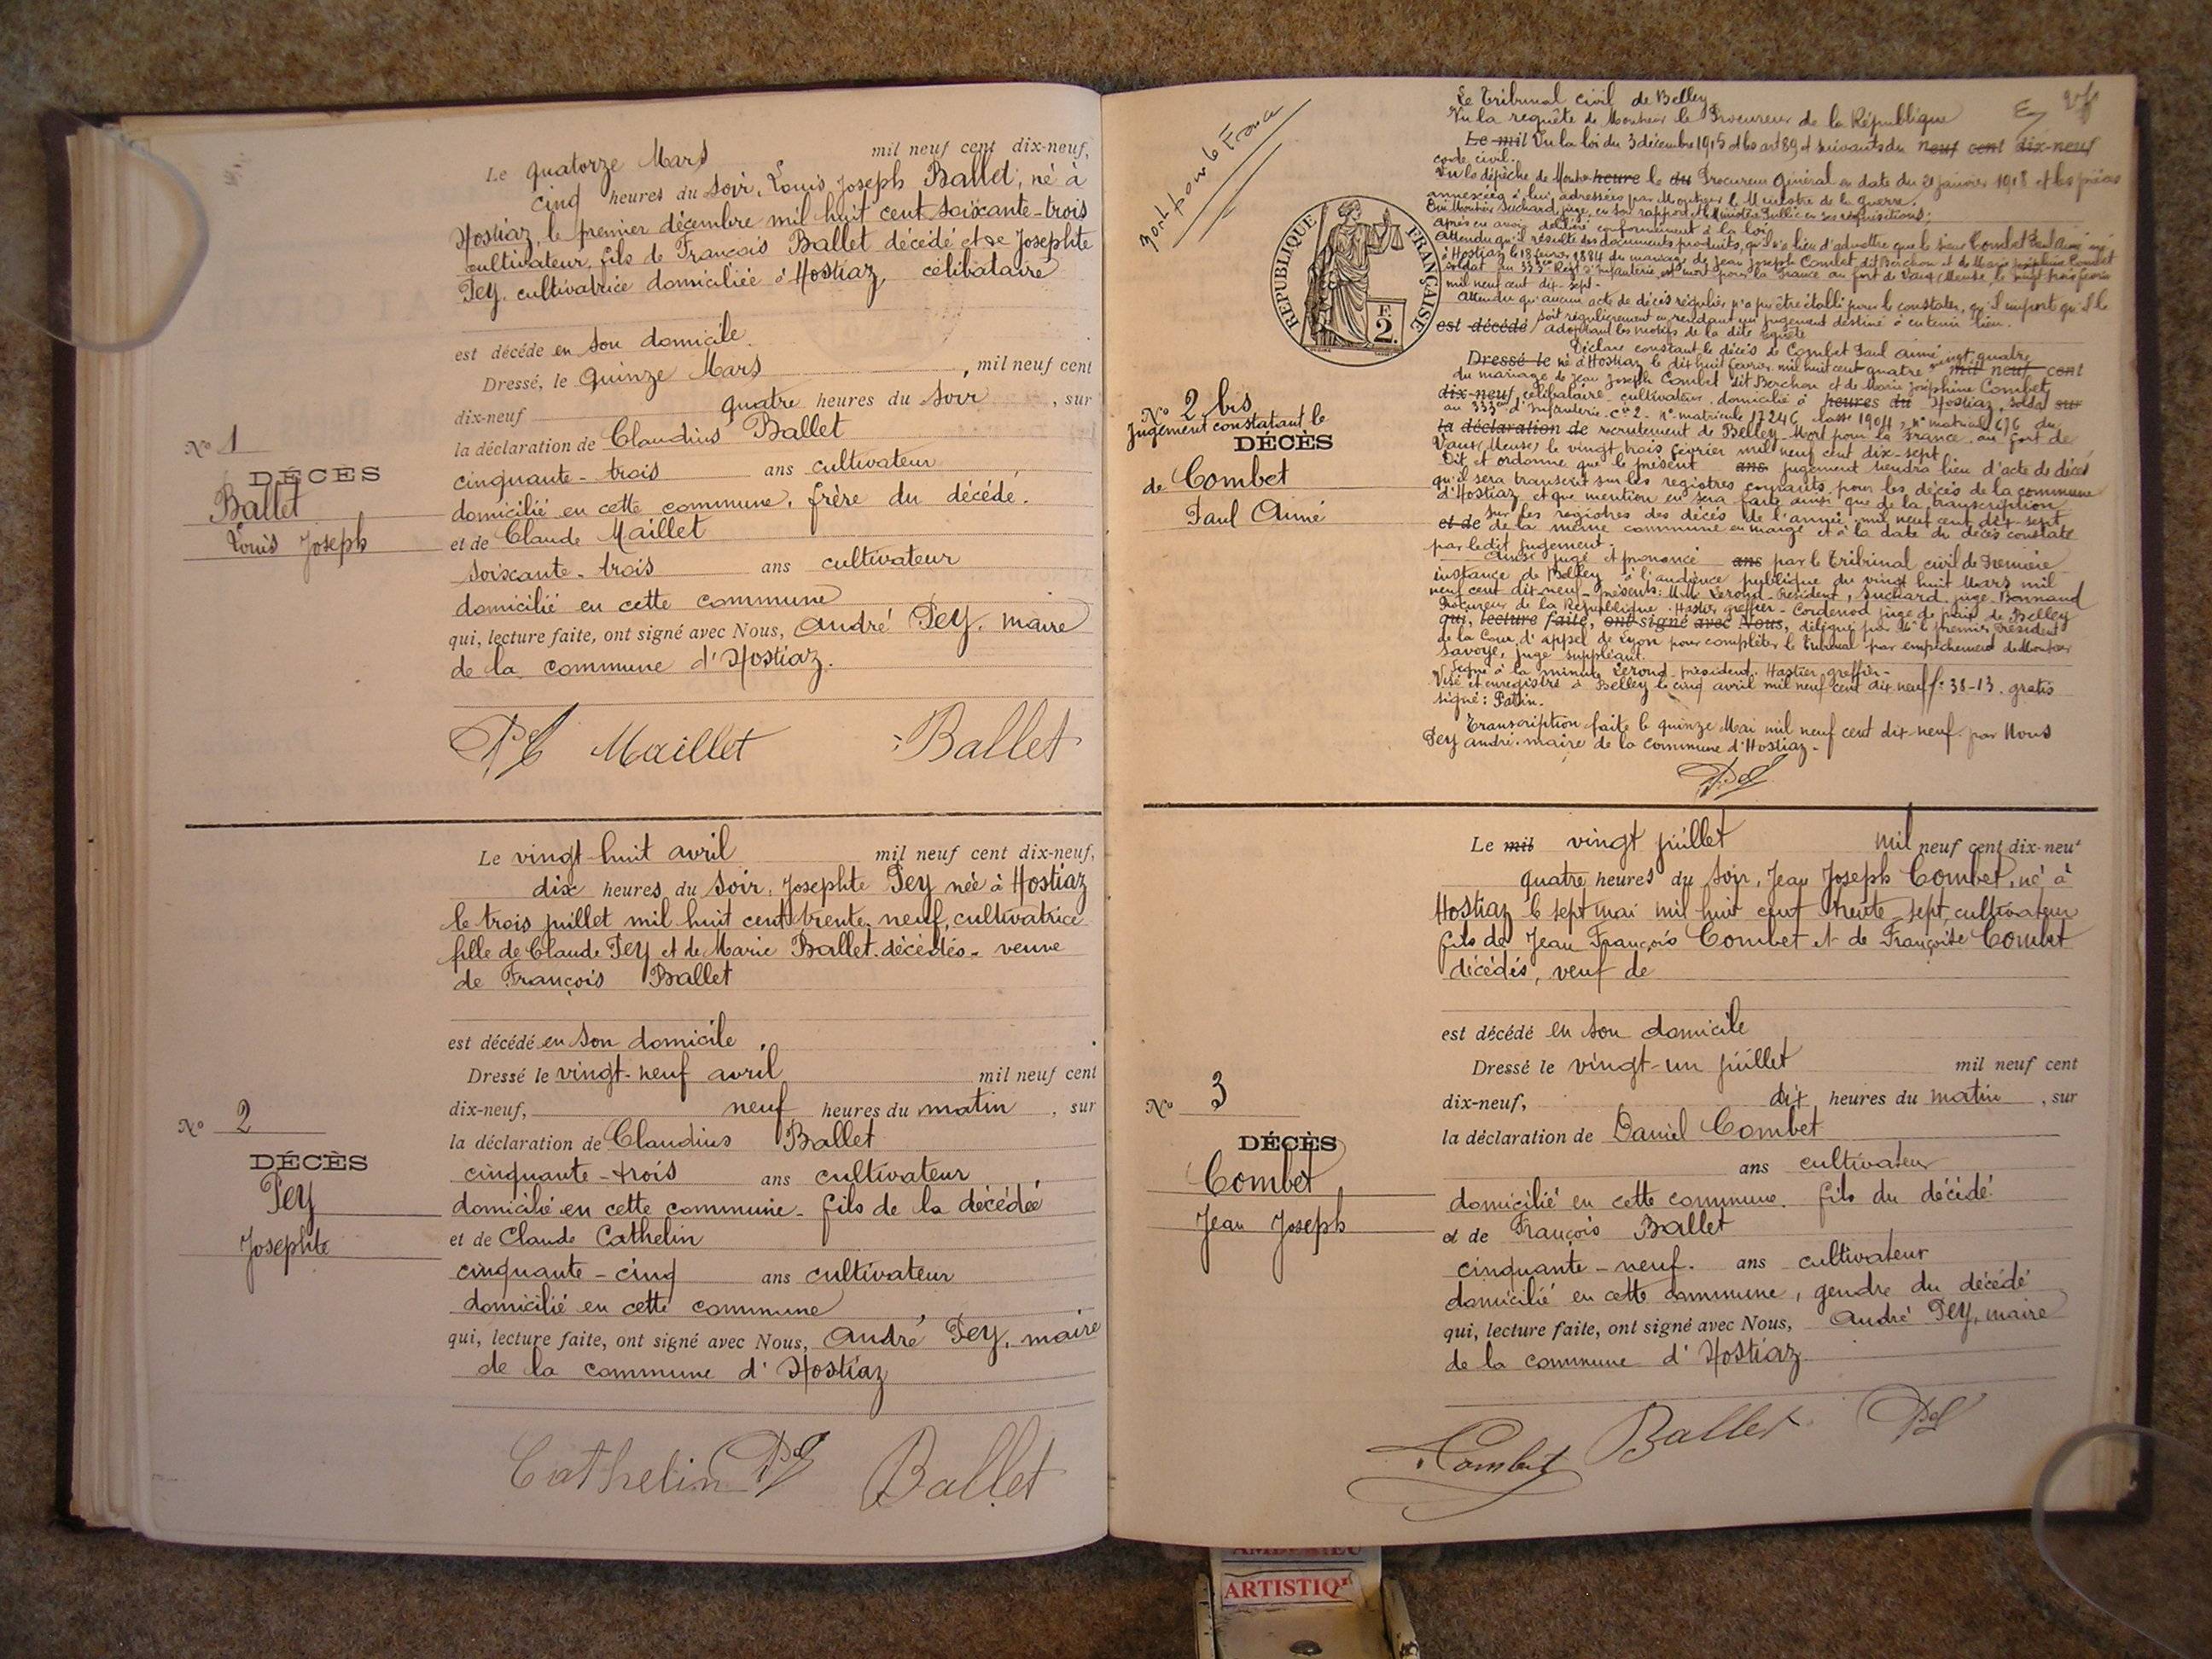 Le quatorze Mars mil neuf cent dix-neuf,
cinq heures du soir, Louis Joseph Ballet, né à
Hostiaz, le premier décembre mil huit cent soixante-trois
cultivateur, fils de François Ballet décédé et de Josephte
Pey, cultivatrice domiciliée à Hostiaz, célibataire
est décédé en son domicile.
Dressé, le quinze Mars, mil neuf cent
dix-neuf quatre heures du soir, sur
la déclaration de Claudius Ballet
cinquante-trois ans cultivateur
domicilié en cette commune, frère du décédé.
et de Claude Maillet
soixante-trois ans cultivateur
domicilié en cette commune
qui, lecture faite, ont signé avec Nous, André Pey, maire
de la commune d'Hostiaz.
Maillet Ballet
No 1
DÉCÈS
Ballet
Louis Joseph
Le vingt-huit avril mil neuf cent dix-neuf,
dix heures du soir, Josephte Pey née à Hostiaz
le trois juillet mil huit cent trente-neuf, cultivatrice
fille de Claude Pey et de Marie Ballet décédés - veuve
de François Ballet
est décédé en son domicile.
Dressé le vingt-neuf avril mil neuf cent
dix-neuf, neuf heures du matin, sur
la déclaration de Claudius Ballet
cinquante-trois ans cultivateur
domicilié en cette commune - fils de la décédée
et de Claude Cathelin
cinquante-cinq ans cultivateur
domicilié en cette commune,
qui, lecture faite, ont signé avec Nous, André Pey, maire
de la commune d'Hostiaz
Cathelin Ballet
No 2
DÉCÈS
Pey
Josephte
Le Tribunal civil de Belley,
Vu la requête de Monsieur le Procureur de la République
Le mil Vu la loi du 3 décembre 1915 et les art 89 et suivants du neuf cent dix-neuf
code civil.
Vu la dépêche de heure le du Procureur Général en date du 21 janvier 1918 et les pièces
annexées à lui adressées par Monsieur le Ministre de la guerre.
Ouï Monsieur Suchard, juge, en son rapport et le Ministère Public en ses réquisitions;
Après en avoir délibéré conformément à la loi
Attendu qu'il résulte des documents produits, qu'il y a lieu d'admettre que le sieur Combet Paul Aimé né
à Hostiaz le 18 février 1884 du mariage de Jean Joseph Combet dit Berchon et de Marie Joséphine Combet
soldat au 333e Régt d'Infanterie est mort pour la France au fort de Vaux (Meuse) le vingt trois février
mil neuf cent dix-sept.
Attendu qu'aucun acte de décès régulier n'a pu être établi pour le constater, qu'il importe qu'il le
est décédé soit régulièrement en rendant un jugement destiné à en tenir lieu.
adoptant les motifs de la dite requête
Déclare constant le décès de Combet Paul Aimé
Dressé le né à Hostiaz le dix huit février mil huit cent quatre vingt quatre mil neuf cent
du mariage de Jean Joseph Combet dit Berchon et de Marie Joséphine Combet,
dix-neuf, célibataire cultivateur domicilié à heures du Hostiaz, soldat sur
au 333e d'Infanterie Cie 2 - No matricule 17246 classe 1904, no matricule 676 du
la déclaration de recrutement de Belley - Mort pour la France au fort de
Vaux (Meuse) le vingt trois février mil neuf cent dix-sept
Dit et ordonne que le présent ans jugement tiendra lieu d'acte de décès
qu'il sera transcrit sur les registres courants pour les décès de la commune
d'Hostiaz et que mention en sera faite ainsi que de la transcription
sur les registres des décès de l'année mil neuf cent dix-sept
et de de la même commune en marge et à la date du décès constaté
par le dit jugement.
Ainsi jugé et prononcé ans par le Tribunal civil de Première
instance de Belley à l'audience publique du vingt huit Mars mil
neuf cent dix-neuf - Présents: M.M. Lerond - Président, Suchard juge - Bonnand
Procureur de la République. Hastier greffier - Cordenod juge de paix de Belley
qui, lecture faite, ont signé avec Nous, délégué par Mr le premier Président
de la Cour d'appel de Lyon pour compléter le tribunal par empêchement de Monsieur
Savoye, juge suppléant.
Signé à la minute Lerond président. Hastier greffier.
Visé et enregistré à Belley le cinq avril mil neuf cent dix neuf fo 38-13. gratis
signé: Patin.
Transcription faite le quinze Mai mil neuf cent dix-neuf par Nous
Pey André maire de la commune d'Hostiaz.
mort pour la France
RÉPUBLIQUE FRANÇAISE
F.
2.
No 2 bis
Jugement constatant le
DÉCÈS
de Combet
Paul Aimé
Le mil vingt juillet mil neuf cent dix-neuf
quatre heures du soir, Jean Joseph Combet, né à
Hostiaz le sept mai mil huit cent trente-sept, cultivateur
fils de Jean François Combet et de Françoise Combet
décédés, veuf de
est décédé en son domicile
Dressé le vingt-un juillet mil neuf cent
dix-neuf, dix heures du matin, sur
la déclaration de Daniel Combet
ans cultivateur
domicilié en cette commune. fils du décédé
et de François Ballet
cinquante-neuf. ans cultivateur
domicilié en cette commune, gendre du décédé
qui, lecture faite, ont signé avec Nous, André Pey, maire
de la commune d'Hostiaz
Combet Ballet
No 3
DÉCÈS
Combet
Jean Joseph
ARTISTIQ